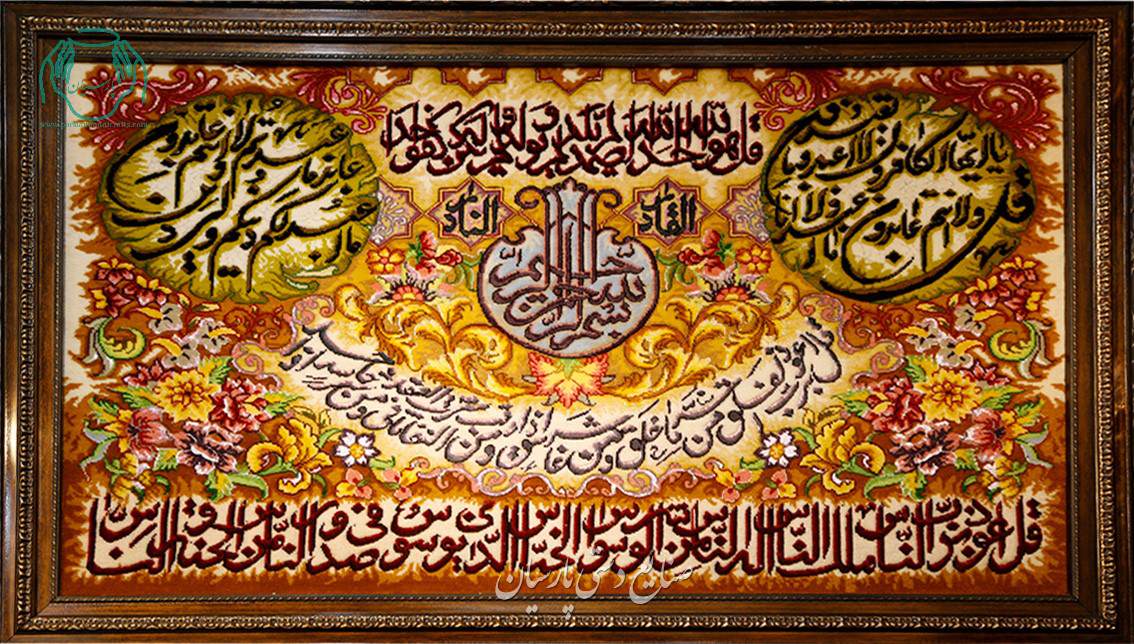 قل هو الله احد الله الصمد لم يلد ولم يولد ولم يكن له كفوا احد
قل يا ايها الكافرون لا اعبد ما تعبدون ولا انتم عابدون ما اعبد ولا انا
عابد ما عبدتم ولا انتم عابدون ما اعبد لكم دينكم ولي دين
بسم الله الرحمن الرحيم
قل اعوذ برب الفلق من شر ما خلق ومن شر غاسق اذا وقب ومن شر النفاثات في العقد ومن شر حاسد اذا حسد
قل اعوذ برب الناس ملك الناس اله الناس من شر الوسواس الخناس الذي يوسوس في صدور الناس من الجنة و الناس
صنایع دستی پارسیان